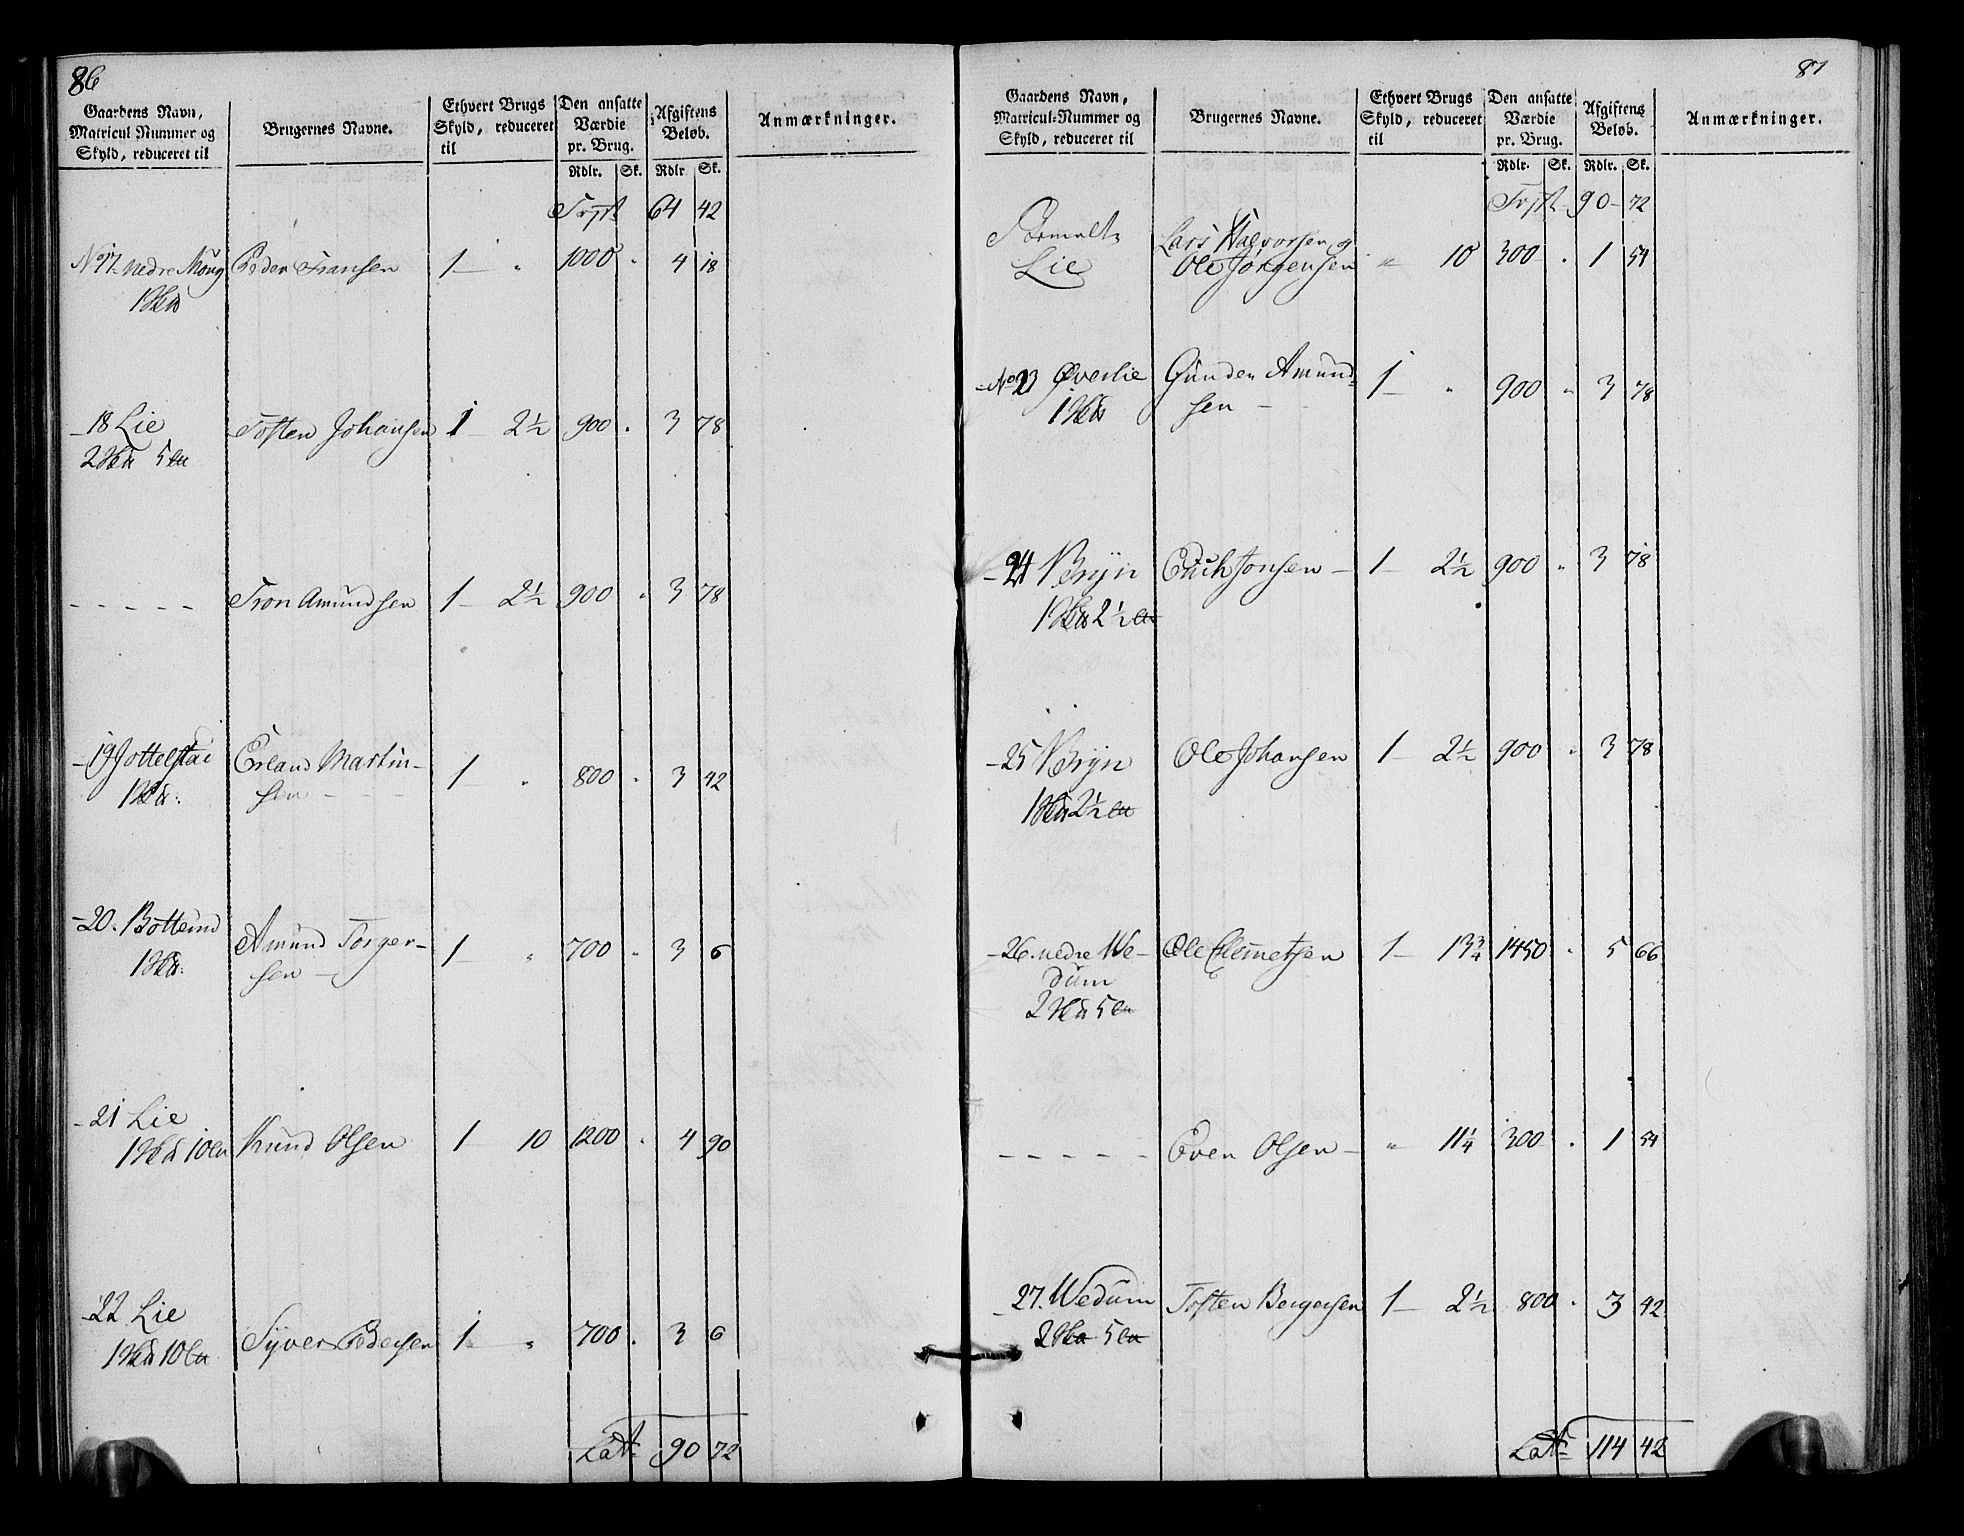 86
Gaardens Navn, Matricul Nummer og Skyld, reduceret til | Brugernes Navne. | Ethvert Brugs Skyld, reduceret til | Den ansatte Værdie pr. Brug. | Afgiftens Beløb. | Anmærkninger.
Rdlr. Sk. Rdlr. Sk.
64 42
No 17 nedre Moug Peder Fransen 1 — „ 1000 „ 4 18
18 Lie Tosten Johansen 1 — 2½ 900 „ 3 78
- - - - - Tron Amundsen 1 — 2½ 900 „ 3 78
19 Erland Martin- 1 — „ 800 „ 3 42
sen
20. Amund Torger- 1 — „ 700 „ 3 6
sen
21 Lie Knud Olsen 1 — 10 1200 „ 4 90
22 Lie Syver Pedersen 1 — „ 700 „ 3 6
Lat. 90 72
87
Gaardens Navn, Matricul-Nummer og Skyld, reduceret til | Brugernes Navne. | Ethvert Brugs Skyld, reduceret til | Den ansatte Værdie pr. Brug. | Afgiftens Beløb. | Anmærkninger.
Rdlr. Sk. Rdlr. Sk.
90 72
Lars Halvorsen og
Lie Ole Jørgensen „ 10 300 „ 1 54
No 23 Øverlie Gunder Amund- 1 — „ 900 „ 3 78
sen
24 Bryn Erich Jonsen 1 — 2½ 900 „ 3 78
25 Bryn Ole Johansen 1 — 2½ 900 „ 3 78
26. nedre We- Ole Clemetsen 1 — 13¾ 1450 „ 5 66
dum
- - - - - Even Olsen „ 11¼ 300 „ 1 54
27. Wedum Tosten Bergersen 1 — 2½ 800 „ 3 42
Lat. 114 42